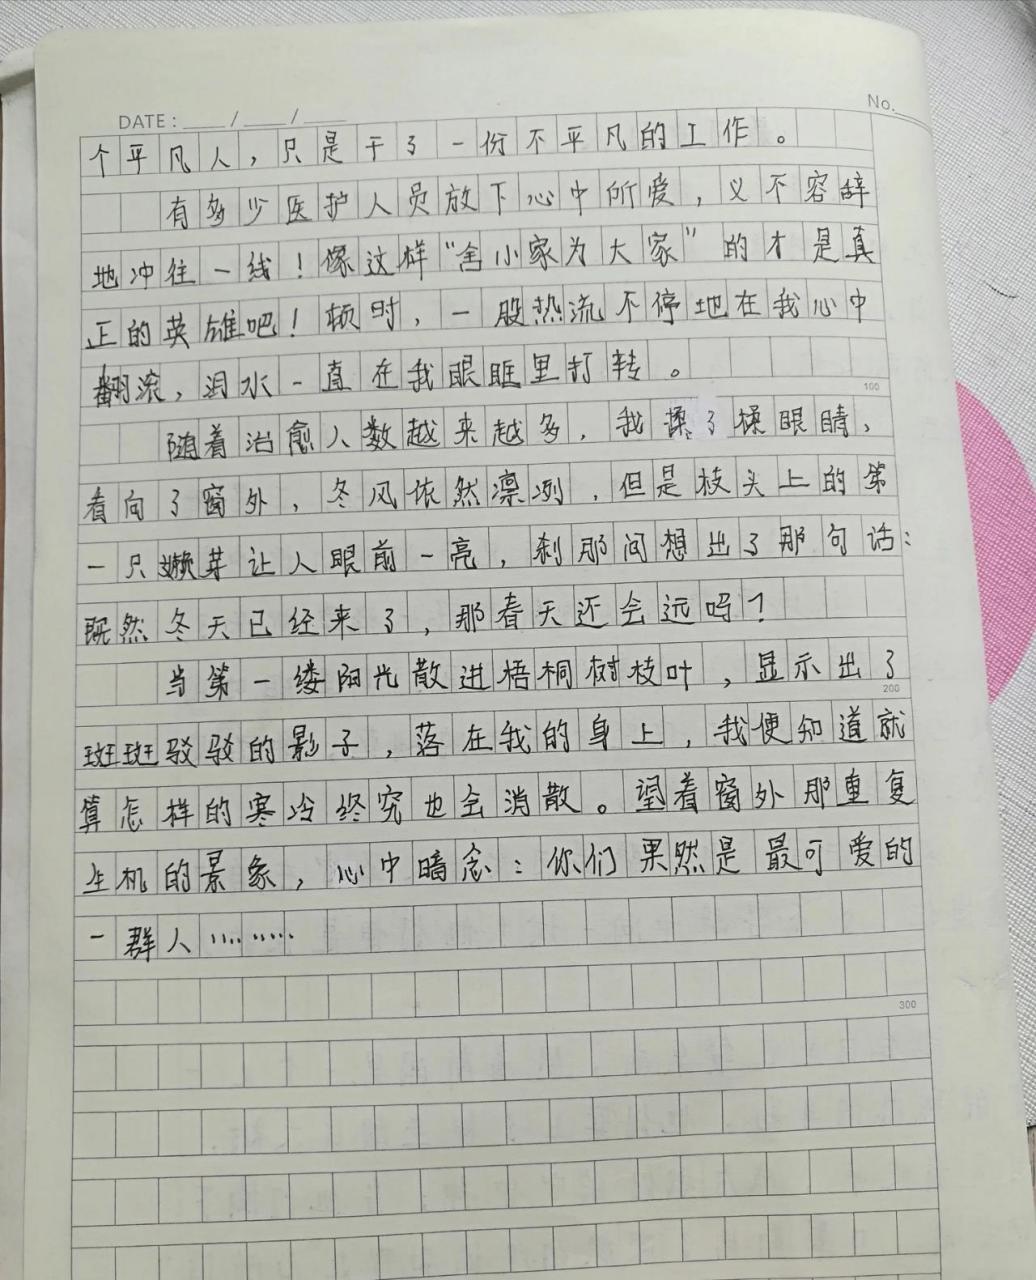 No.
DATE : / /
个平凡人，只是干了一份不平凡的工作。
有多少医护人员放下心中所爱，义不容辞
地冲往一线！像这样“舍小家为大家”的才是真
正的英雄吧！顿时，一股热流不停地在我心中
翻滚，泪水一直在我眼眶里打转。
100
随着治愈人数越来越多，我揉了揉眼睛，
看向了窗外，冬风依然凛冽，但是枝头上的第
一只嫩芽让人眼前一亮，刹那间想出了那句话：
既然冬天已经来了，那春天还会远吗？
当第一缕阳光散进梧桐树枝叶，显示出了
200
斑斑驳驳的影子，落在我的身上，我便知道就
算怎样的寒冷终究也会消散。望着窗外那重复
生机的景象，心中暗念：你们果然是最可爱的
一群人………
300